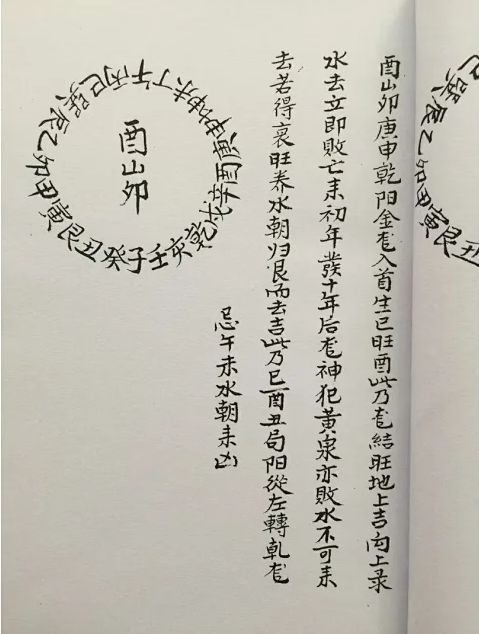 酉山夘庚申乾阳金龙入首生巳旺酉此乃龙結旺地上吉向上录
水去立即敗亡耒初年發十年后龙神犯黃泉亦敗水不可耒
去若得衰旺养水朝归艮而去吉此乃巳酉丑局阳從左轉乹龙
忌午未水朝耒凶
酉山夘
巽巳丙午丁未坤申庚酉辛戌乾亥壬子癸丑艮寅甲夘乙辰
巽辰乙夘甲寅艮丑